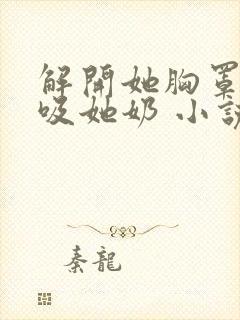 解開她胸罩
吸她奶 小說
秦龍